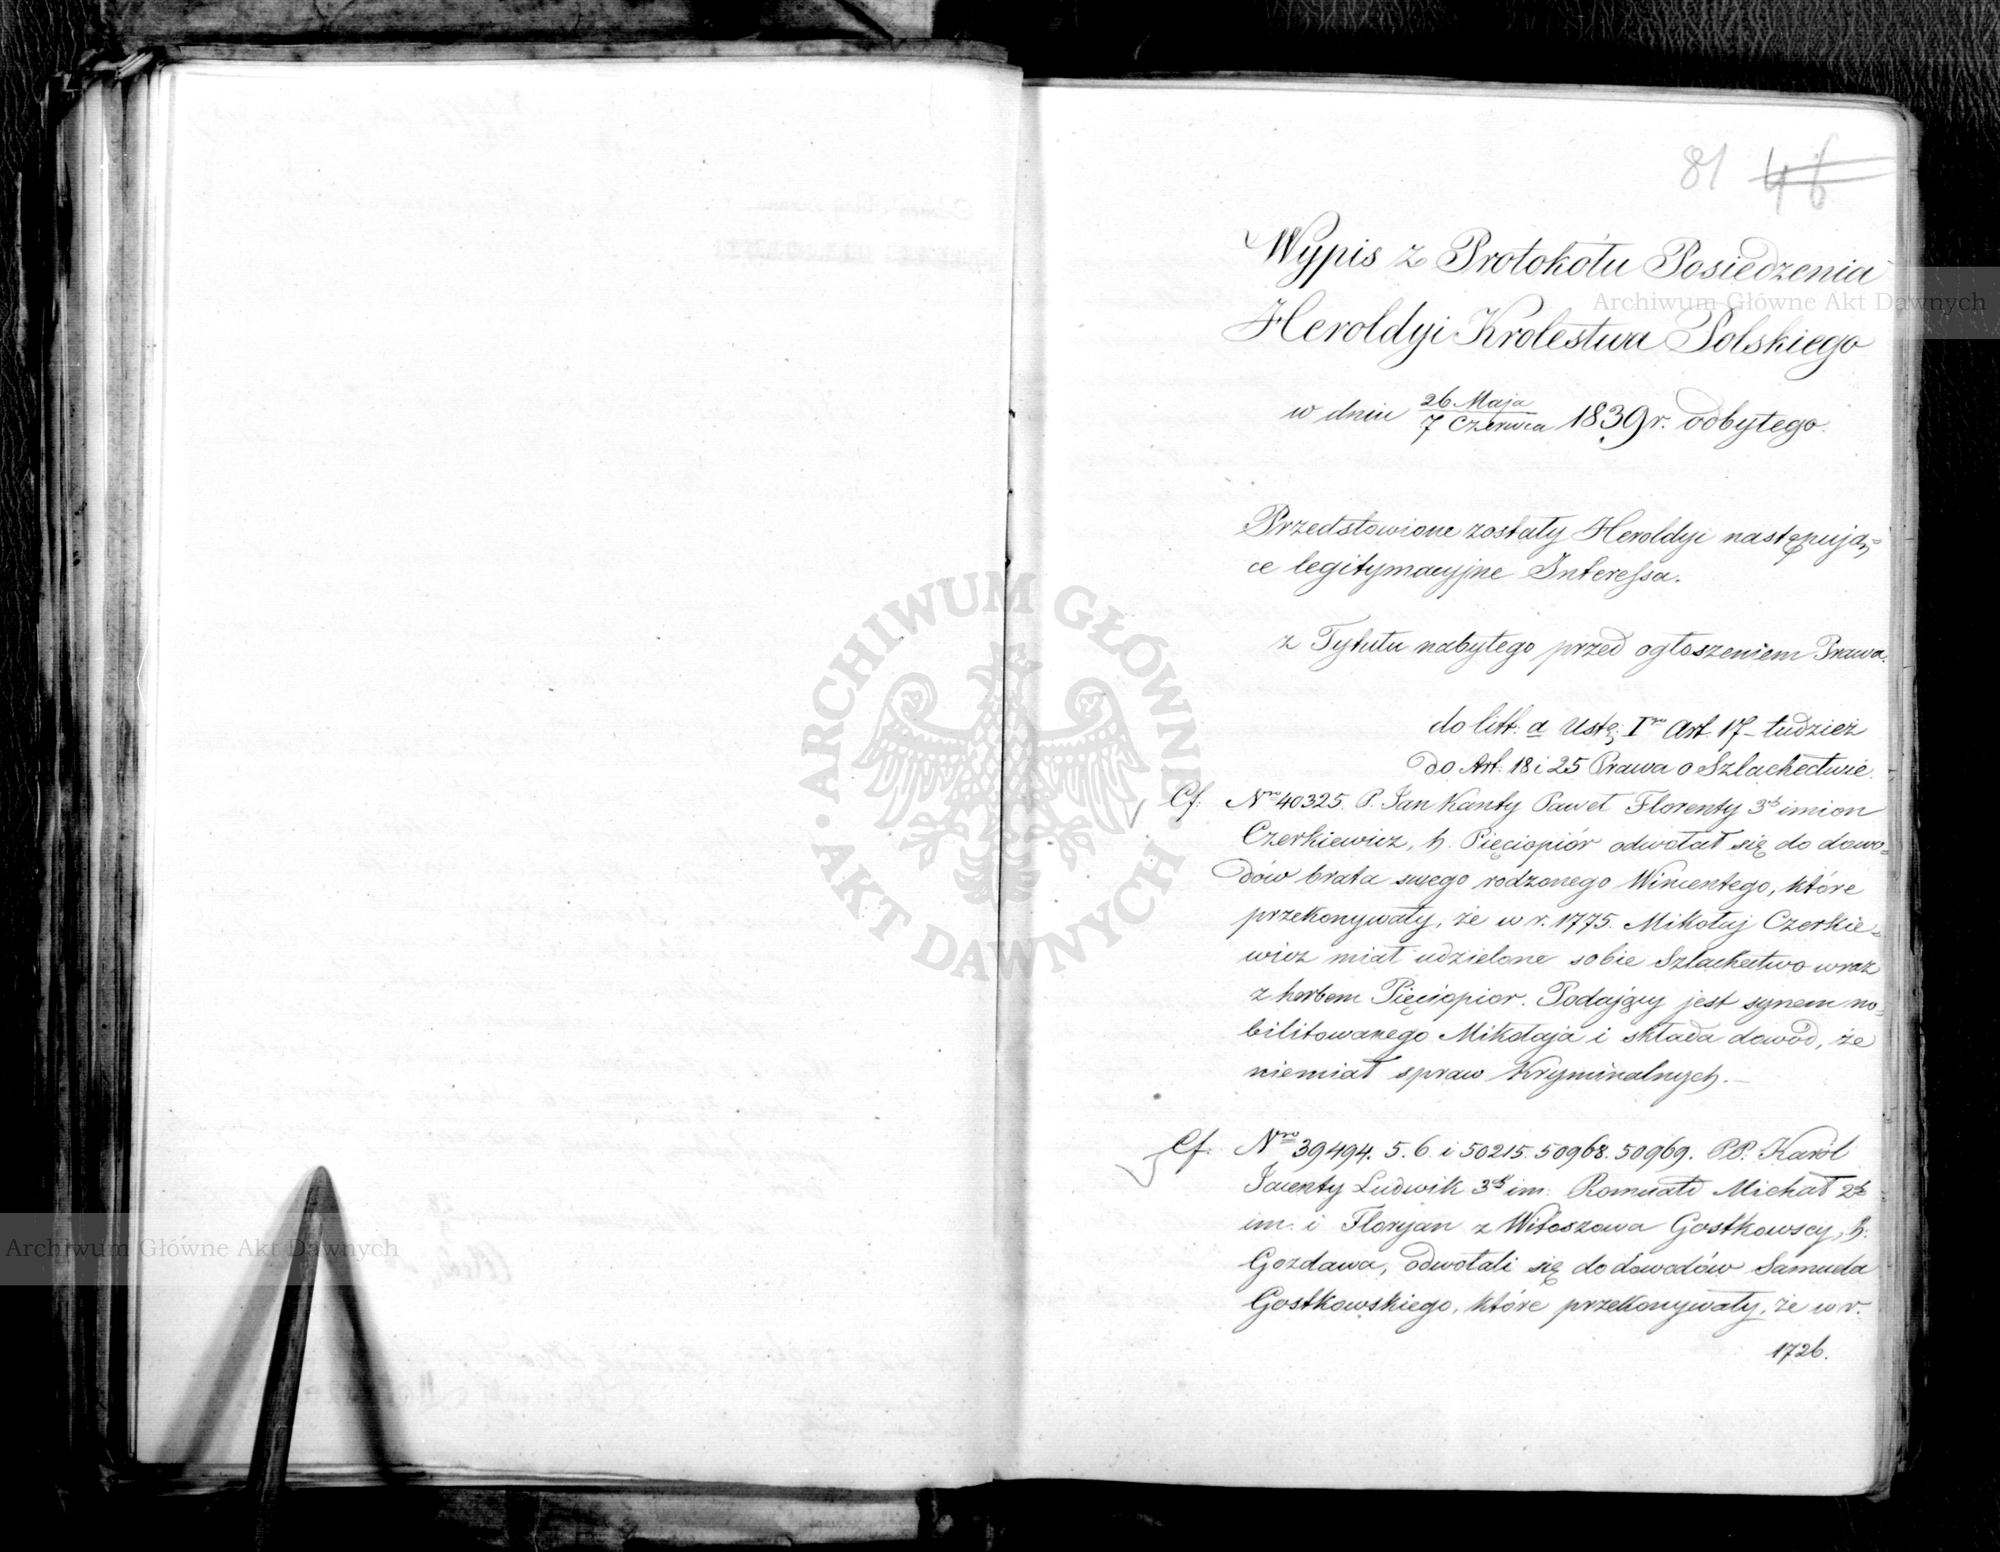 81 46
Wypis z Protokółu Posiedzenia
Heroldyi Krolestwa Polskiego
w dniu 26 Maja / 7 Czerwca 1839 r. odbytego.
Przedstawione zostały Heroldyi następują=
ce legitymacyjne Interessa.
z Tytułu nabytego przed ogłoszeniem Prawa.
do litt: a Ustę: Igo Art 17 - tudzież
do Art: 18 i 25 Prawa o Szlachectwie.
Cf: Nro 40325. P. Jan Kanty Paweł Florenty 3ch imion
Czerkiewicz, h. Pięciopiór odwołał się do dowo=
dów brata swego rodzonego Wincentego, które
przekonywały, że w r. 1775. Mikołaj Czerkie=
wicz miał udzielone sobie Szlachectwo wraz
z herbem Pięciopior. Podający jest synem no=
bilitowanego Mikołaja i składa dowód, że
niemiał spraw Kryminalnych. —
Cf: Nro 39494. 5. 6. i 50215. 50968. 50969. PP. Karól
Jacenty Ludwik 3ch im: Romuald Michał 2ch
im. i Floryan z Witoszowa Gostkowscy, h.
Gozdawa, odwołali się do dowodów Samuela
Gostkowskiego, które przekonywały, że w r.
1726.
ARCHIWUM GŁÓWNE AKT DAWNYCH
Archiwum Główne Akt Dawnych
Archiwum Główne Akt Dawnych